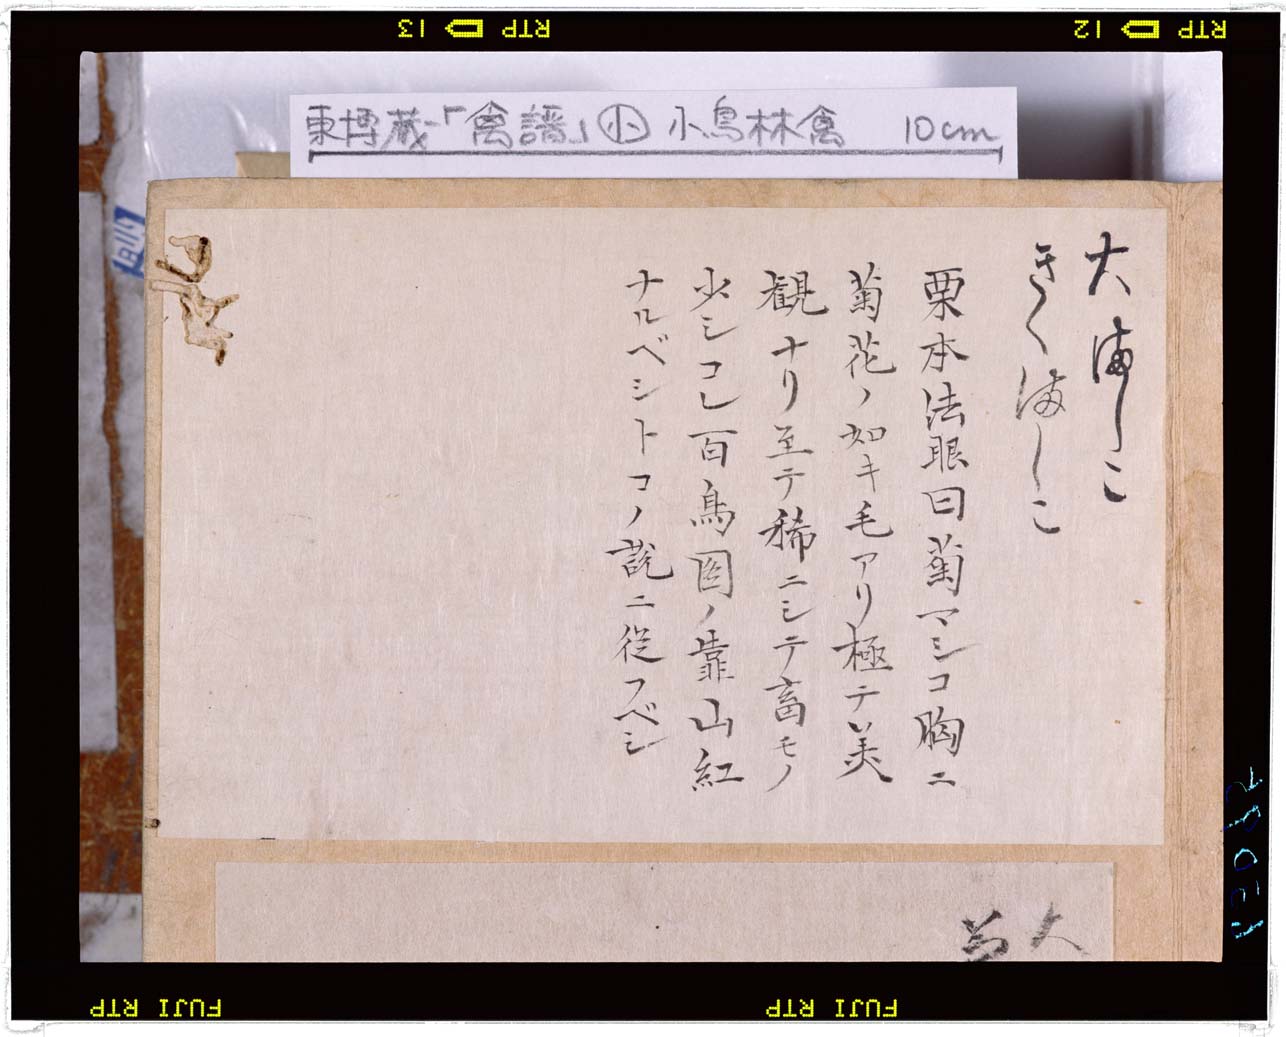 RTP 12
RTP 13
東博蔵「禽譜」小 小鳥林禽 10cm
大ましこ
きくましこ
栗本法眼曰菊マシコ胸ニ
菊花ノ如キ毛アリ極テ美
観ナリ至テ稀ニシテ畜モノ
少シコレ百鳥図ノ靠山紅
ナルベシトコノ説ニ従フベシ
大
FUJI RTP
FUJI RTP